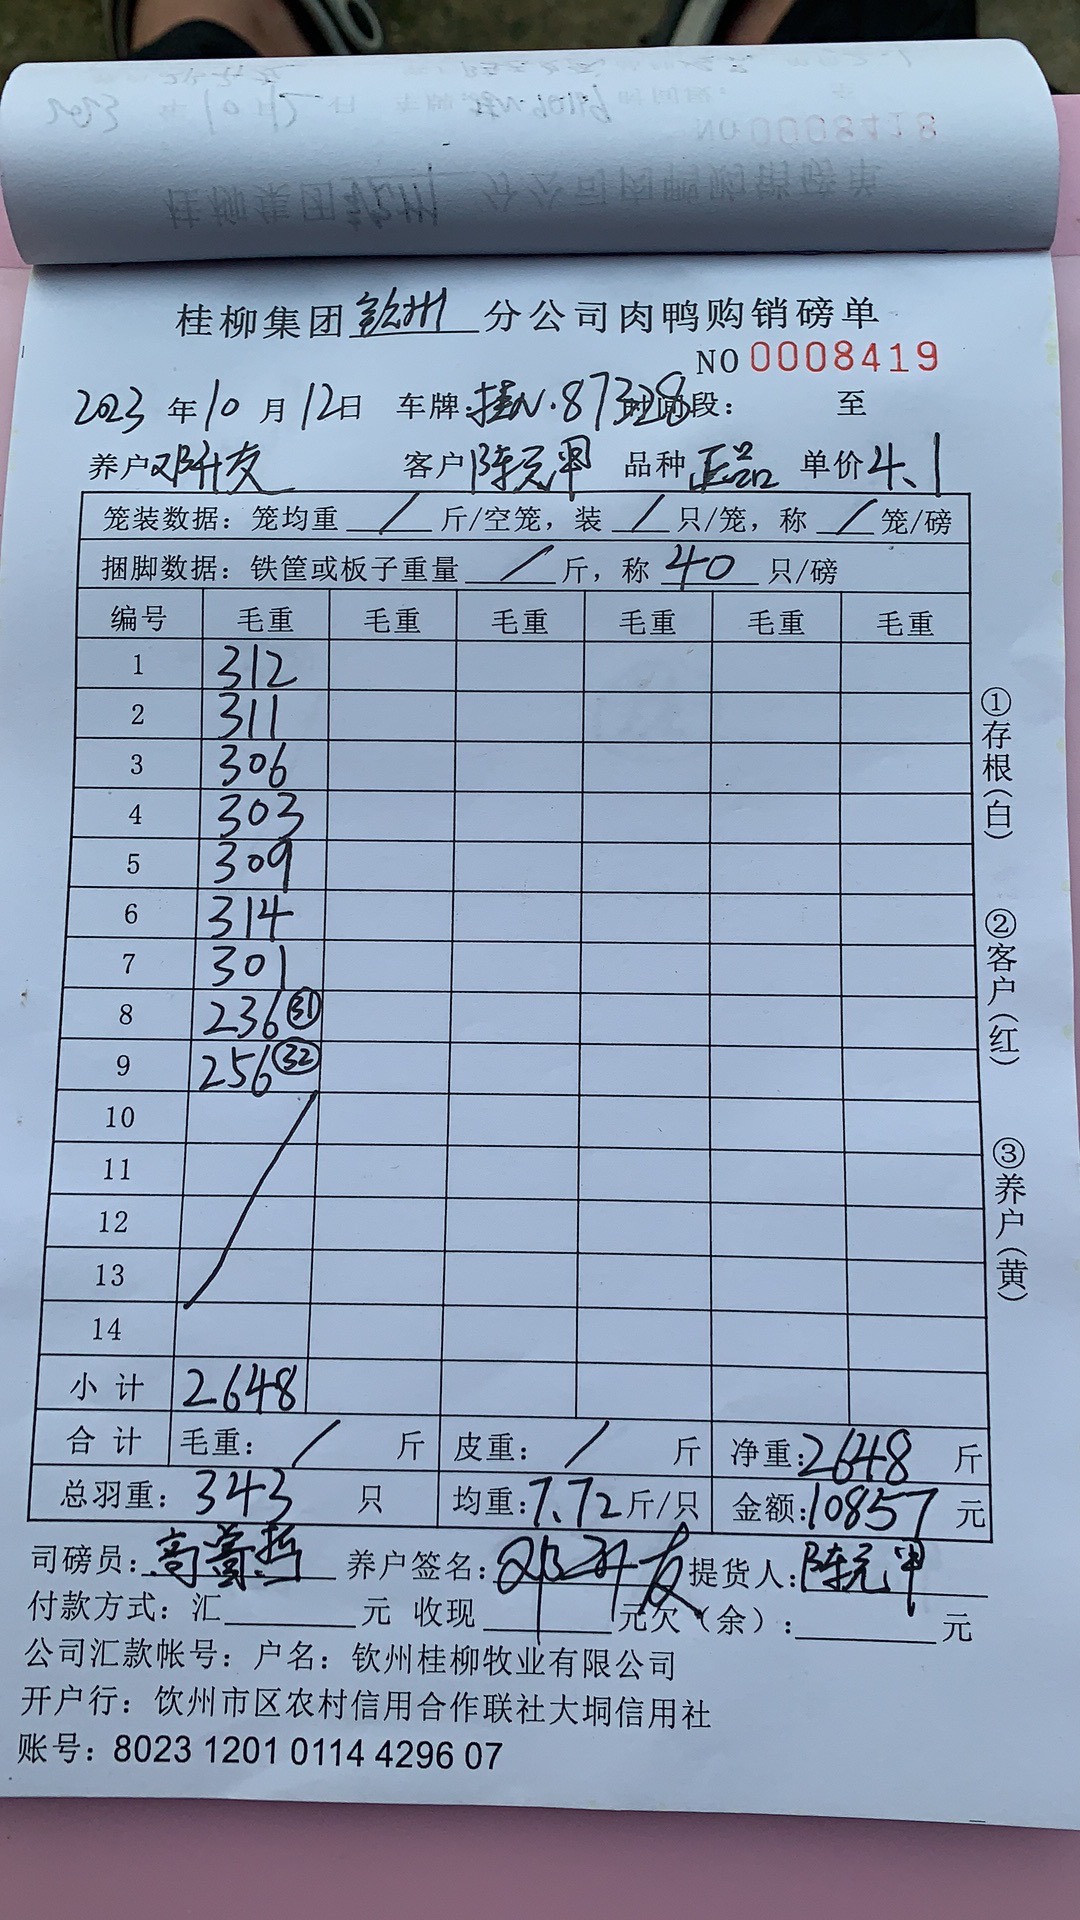 桂柳集团钦州分公司肉鸭购销磅单
NO 0008419
2023年10月12日 车牌:桂N·87328 时间段: 至
养户邓升友 客户陈元甲 品种正品 单价4.1
笼装数据:笼均重/斤/空笼,装/只/笼,称/笼/磅
捆脚数据:铁筐或板子重量/斤,称40只/磅
编号 毛重 毛重 毛重 毛重 毛重 毛重
1 312
2 311
3 306
4 303
5 309
6 314
7 301
8 236 ㉛
9 256 ㉜
10
11
12
13
14
小计 2648
合计 毛重:/斤 皮重:/斤 净重:2648斤
总羽重:343只 均重:7.72斤/只 金额:10857元
司磅员: 养户签名:邓升友 提货人:陈元甲
付款方式:汇____元 收现____元欠(余):____元
公司汇款帐号:户名:钦州桂柳牧业有限公司
开户行:饮州市区农村信用合作联社大垌信用社
账号:8023 1201 0114 4296 07
①存根(白)
②客户(红)
③养户(黄)